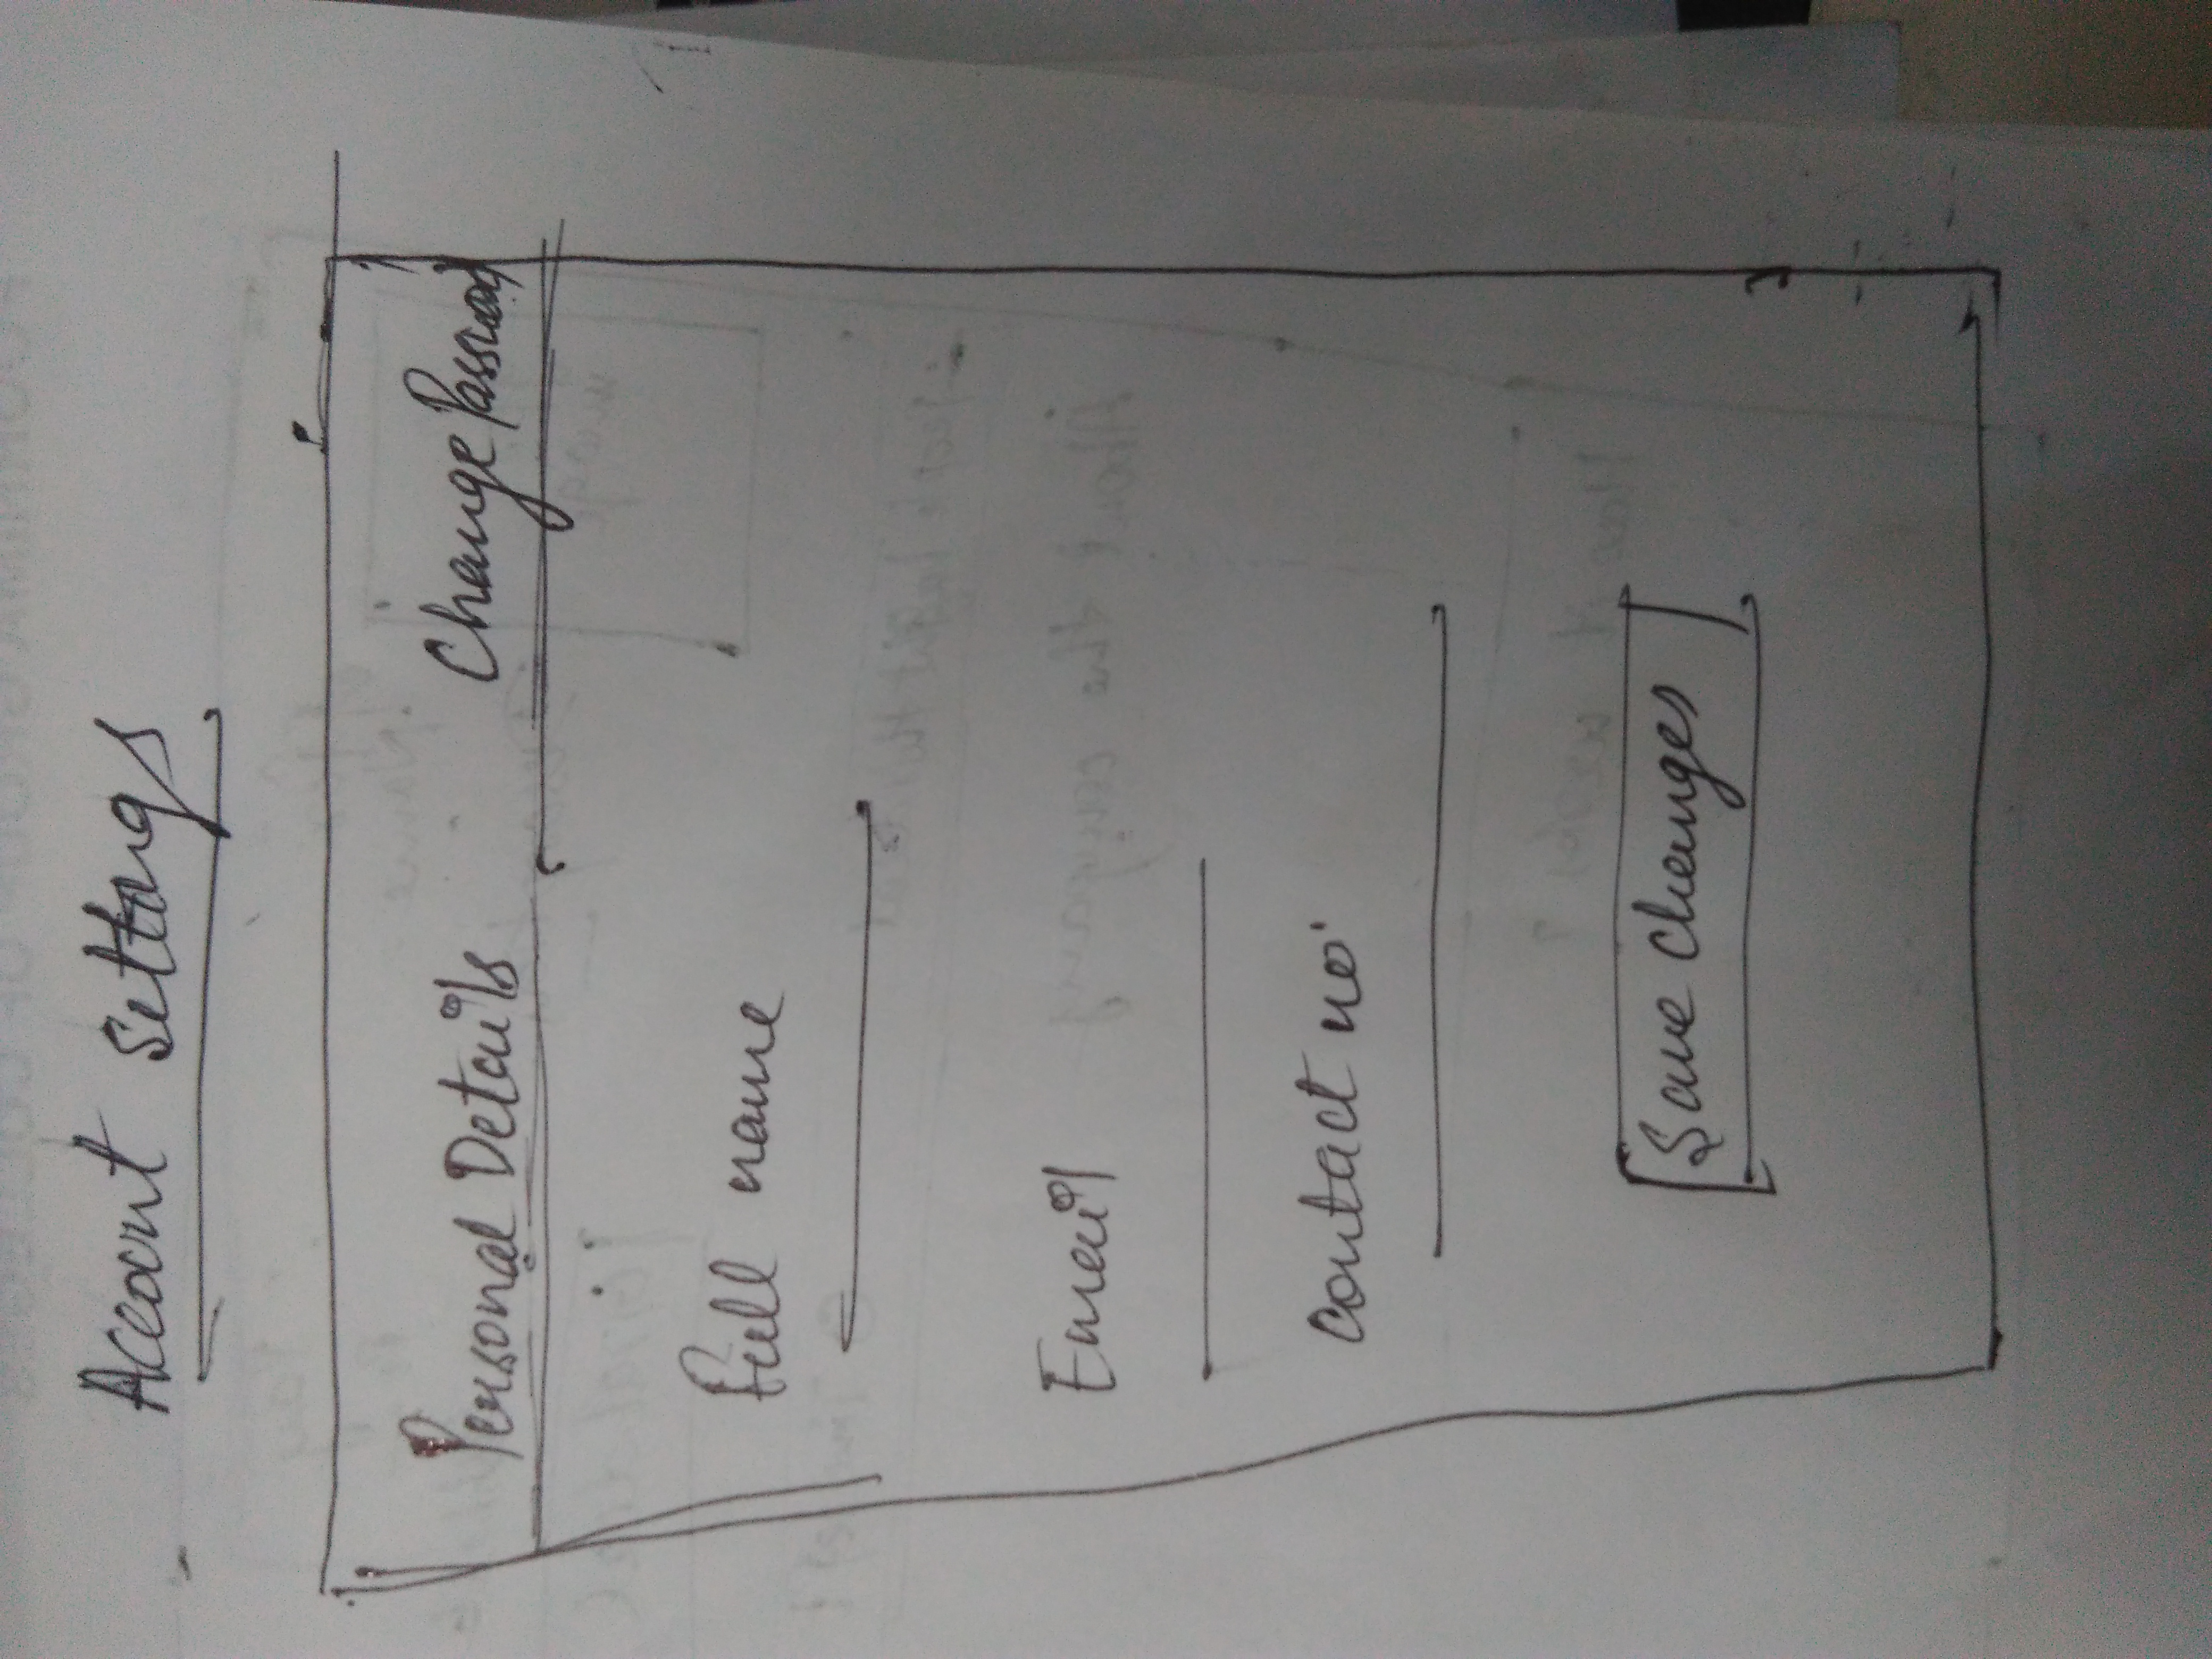 Account Settings
Personal Details Change Password
full name
Email
contact no.
Save Changes